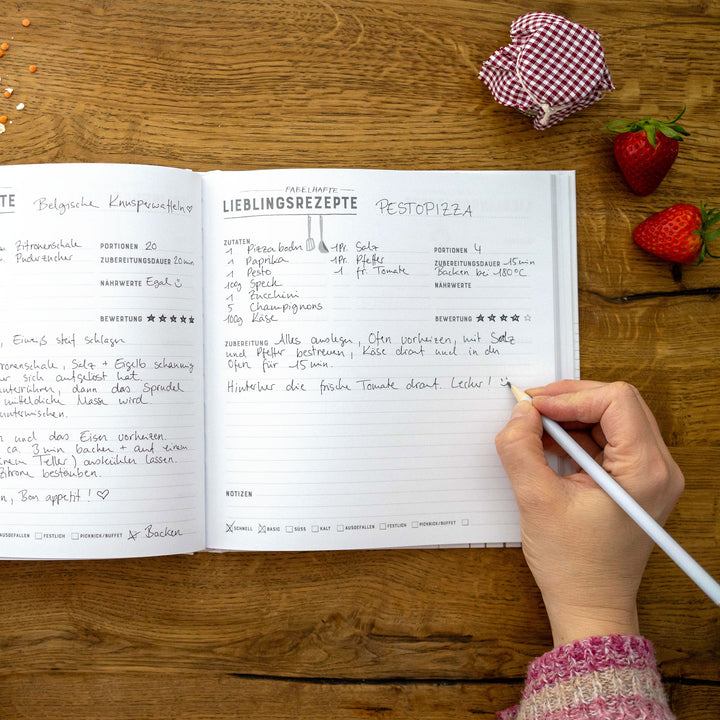 TE Belgische Knusperwaffeln ♡
Zitronenschale
Puderzucker
PORTIONEN 20
ZUBEREITUNGSDAUER 20min
NÄHRWERTE Egal ☺
BEWERTUNG ★★★★★
, Eiweiß steif schlagen
ronenschale, Salz + Eigelb schaumig
er sich aufgelöst hat.
unterrühren, dann das Sprudel
mitteldicke Masse wird
untermischen.
n und das Eisen vorheizen.
ca. 3min backen + auf einem
Teller) auskühlen lassen.
Zitrone bestäuben.
n, Bon appetit! ♡
AUSGEFALLEN FESTLICH PICKNICK/BUFFET Backen
FABELHAFTE
LIEBLINGSREZEPTE PESTOPIZZA
ZUTATEN
1 Pizzabodn
1 Paprika
1 Pesto
100g Speck
1 Zucchini
5 Champignons
100g Käse
1Pr. Salz
1Pr. Pfeffer
1 fr. Tomate
PORTIONEN 4
ZUBEREITUNGSDAUER 15min
Backen bei 180°C
NÄHRWERTE
BEWERTUNG ★★★★☆
ZUBEREITUNG Alles auslegen, Ofen vorheizen, mit Salz
und Pfeffer bestreuen, Käse drauf und in dn
Ofen für 15 min.
Hinterher die frische Tomate drauf. Lecker! ☺
NOTIZEN
SCHNELL BASIC SÜSS KALT AUSGEFALLEN FESTLICH PICKNICK/BUFFET